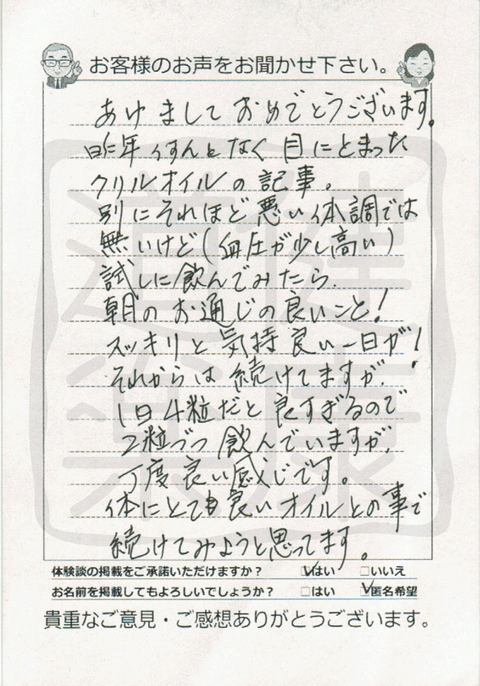 お客様のお声をお聞かせ下さい。
あけましておめでとうございます。
昨年なんとなく目にとまった
クリルオイルの記事。
別にそれほど悪い体調では
無いけど(血圧が少し高い)
試しに飲んでみたら、
朝のお通じの良いこと!
スッキリと気持良い一日が!
それからは続けてますが、
1日4粒だと良すぎるので
2粒づつ飲んでいますが、
丁度良い感じです。
体にとても良いオイルとの事で
続けてみようと思ってます。
体験談の掲載をご承諾いただけますか? ☑はい □いいえ
お名前を掲載してもよろしいでしょうか? □はい ☑匿名希望
貴重なご意見・ご感想ありがとうございます。
健康
道楽